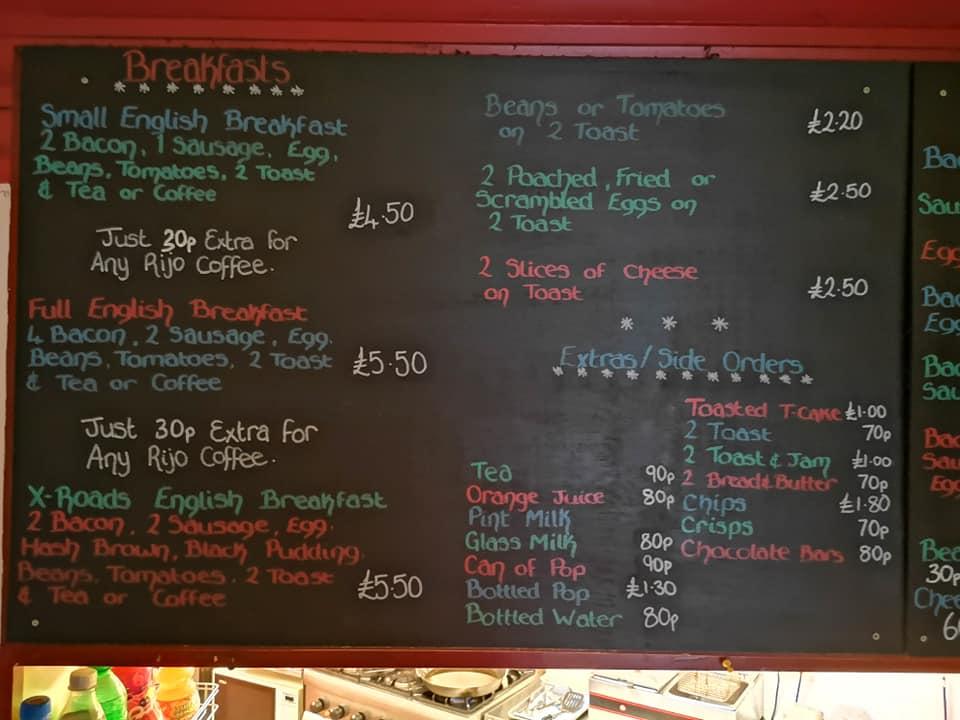 Breakfasts
* * * * * * * * *
Small English Breakfast
2 Bacon, 1 Sausage, Egg,
Beans, Tomatoes, 2 Toast
& Tea or Coffee
£4.50
Just 30p Extra for
Any Rijo Coffee.
Full English Breakfast
4 Bacon, 2 Sausage, Egg.
Beans, Tomatoes, 2 Toast £5.50
& Tea or Coffee
Just 30p Extra for
Any Rijo Coffee.
X-Roads English Breakfast
2 Bacon, 2 Sausage, Egg.
Hash Brown, Black Pudding.
Beans, Tomatoes, 2 Toast £5.50
& Tea or Coffee
Beans or Tomatoes £2.20
on 2 Toast
2 Poached, Fried or £2.50
Scrambled Eggs on
2 Toast
2 Slices of Cheese £2.50
on Toast
* * *
Extras/Side Orders
* * * * * * * * * * * *
Tea 90p
Orange Juice 80p
Pint Milk
Glass Milk 80p
Can of Pop 90p
Bottled Pop £1.30
Bottled Water 80p
Toasted T-Cake £1.00
2 Toast 70p
2 Toast & Jam £1.00
2 Bread & Butter 70p
Chips £1.80
Crisps 70p
Chocolate Bars 80p
30p